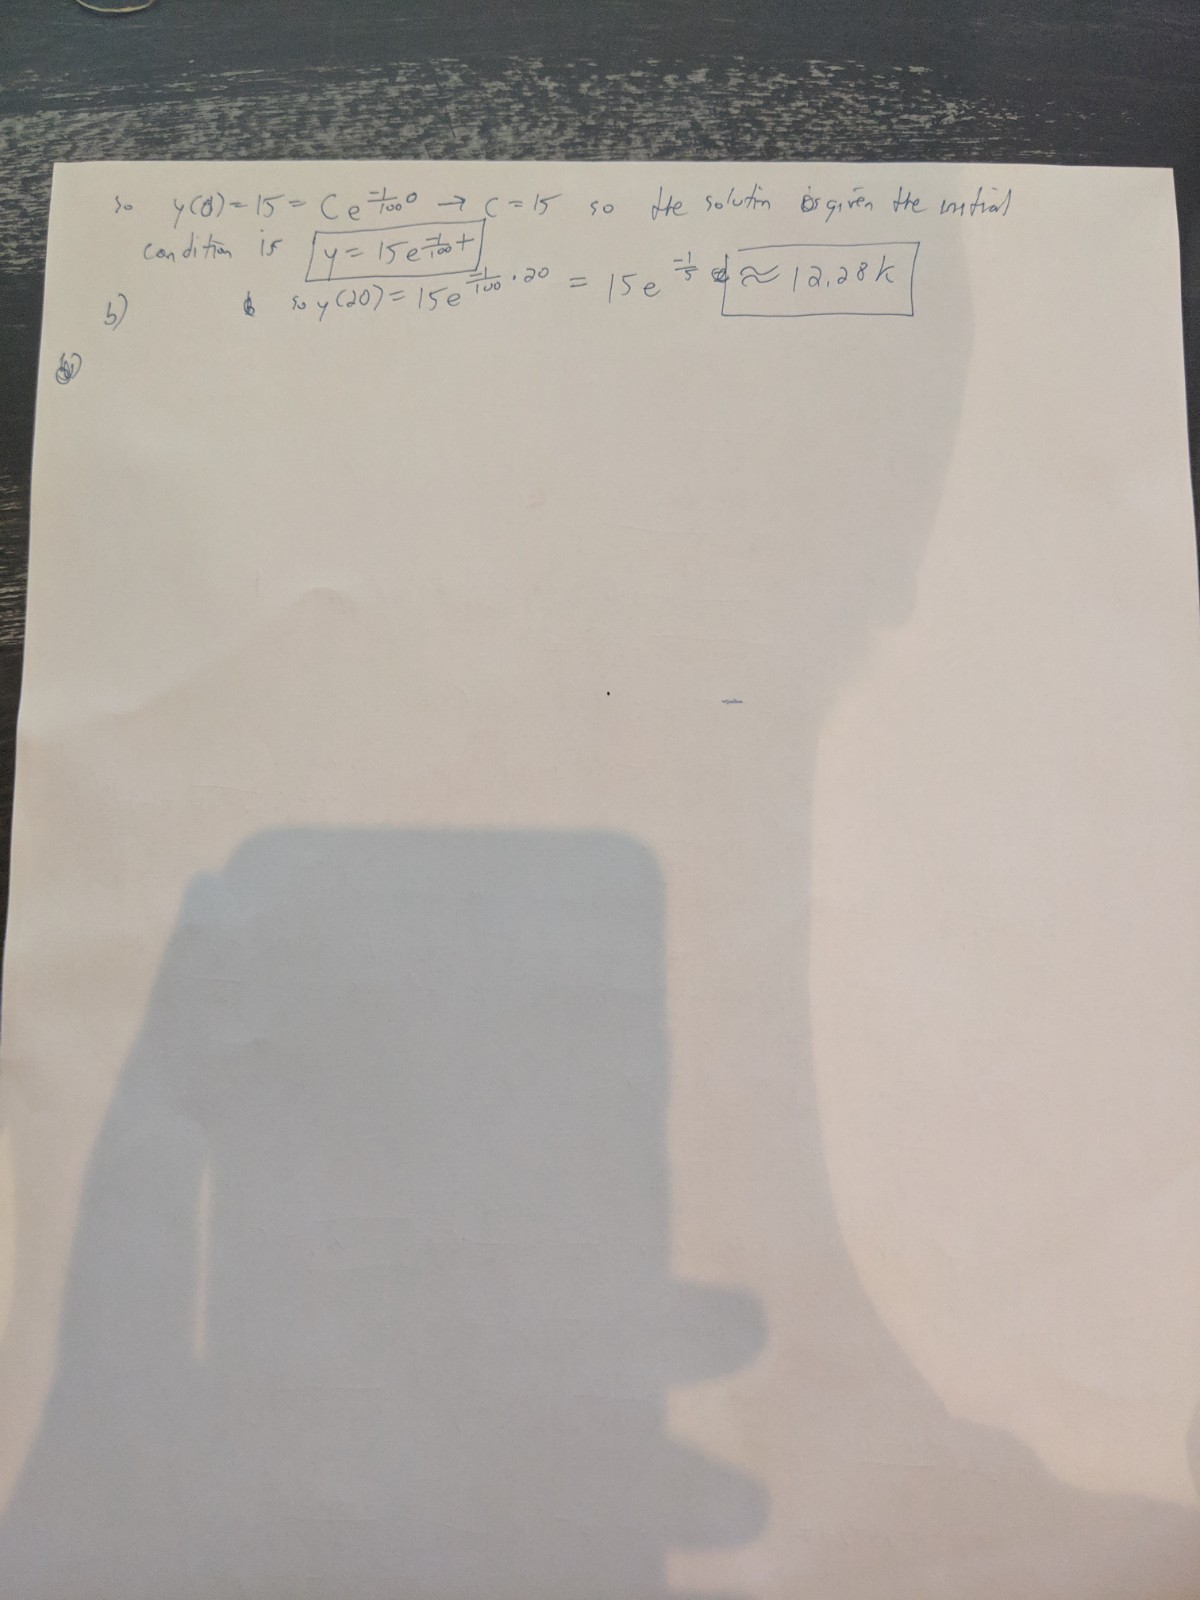 so y(0) = 15 = C e^{-1/100 0} → C = 15 so the solution is given the initial
condition is y = 15e^{-1/100 t}
b) so y(20) = 15e^{-1/100 · 20} = 15e^{-1/5} ≈ 12.28k